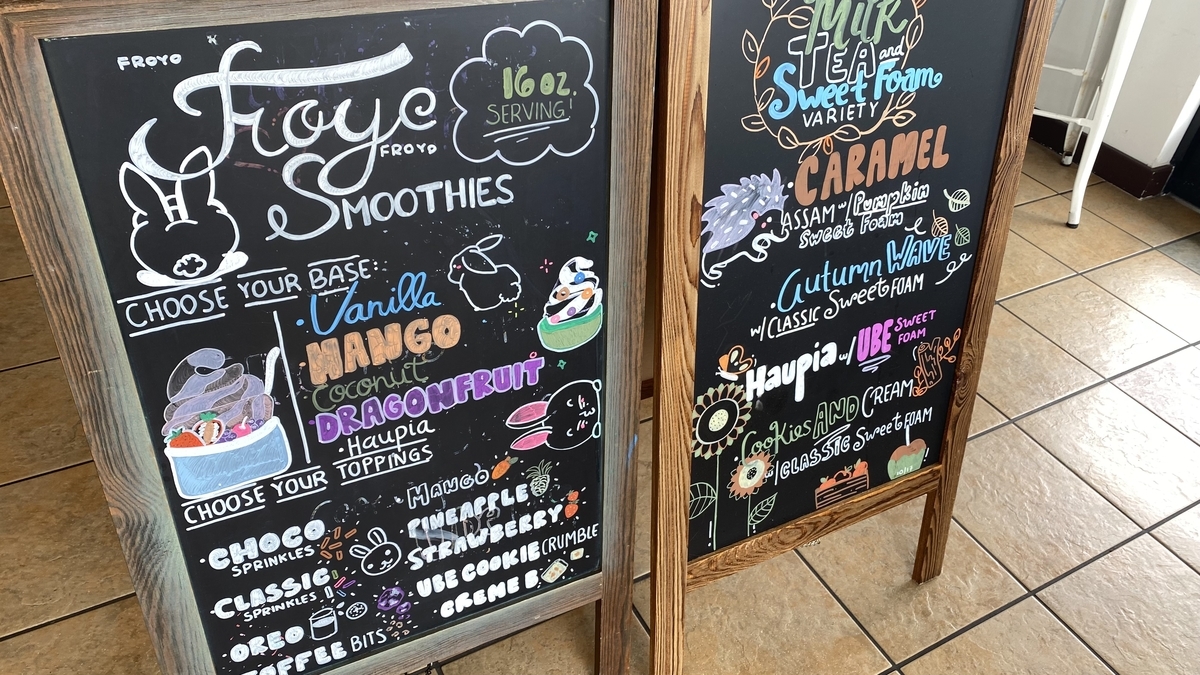 FROYO
Froyo
FROYO
SMOOTHIES
16 oz.
SERVING!
CHOOSE YOUR BASE:
• Vanilla
MANGO
Coconut
DRAGONFRUIT
• Haupia
CHOOSE YOUR TOPPINGS
• CHOCO
SPRINKLES
CLASSIC
SPRINKLES
OREO
TOFFEE BITS
MANGO
PINEAPPLE
STRAWBERRY
UBE COOKIE CRUMBLE
CREME B.
MILK
TEA and
Sweet Foam
VARIETY
• CARAMEL
ASSAM w/ Pumpkin
Sweet Foam
• Autumn WAVE
w/ CLASSIC Sweet FOAM
Haupia w/ UBE SWEET
FOAM
Cookies AND CREAM
w/ CLASSIC Sweet FOAM